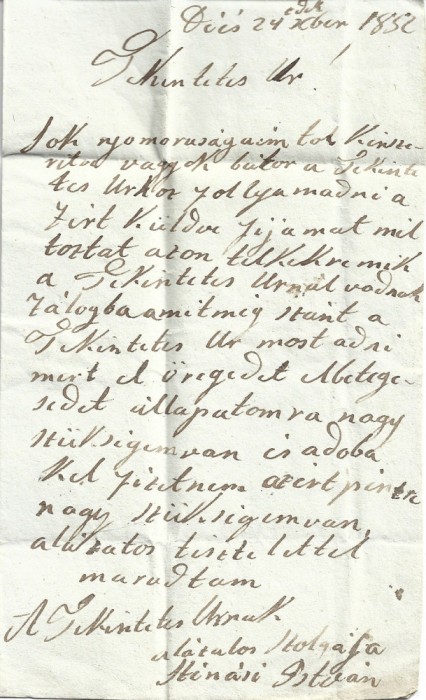 Diós 24 edik Xber 1852
Tekintetes Ur!
Sok nyomoruságaim tol kinsze-
ritve vagyok bátor a Tekinte
tes Urhoz follyamadni a
zirt küldve fijamat mil
toztat azon telkekremik
a Tekintetes Urnál vadnak
zálogba amitmig szánt a
Tekintetes Ur most adni
mert el öregedet Abetege-
sedet állapatomra nagy
szüksigemvan és adoba
kel fizetnem azért pinzre
nagy szüksigemvan,
alázatos tisztelettel
maradtam
A Tekintetes Urnak
alázatos Szolgája
István